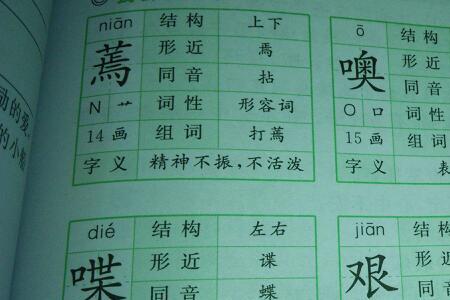 niān 结构 上下
蔫 形近 焉
同音 拈
N 艹 词性 形容词
14画 组词 打蔫
字义 精神不振，不活泼
ō 结构
噢 形近
同音
O 口 词性
15画 组词
字义 表
dié 结构 左右
喋 形近 谍
同音 蝶
jiān 结构
艰 形近
同音
动的爱
的小船